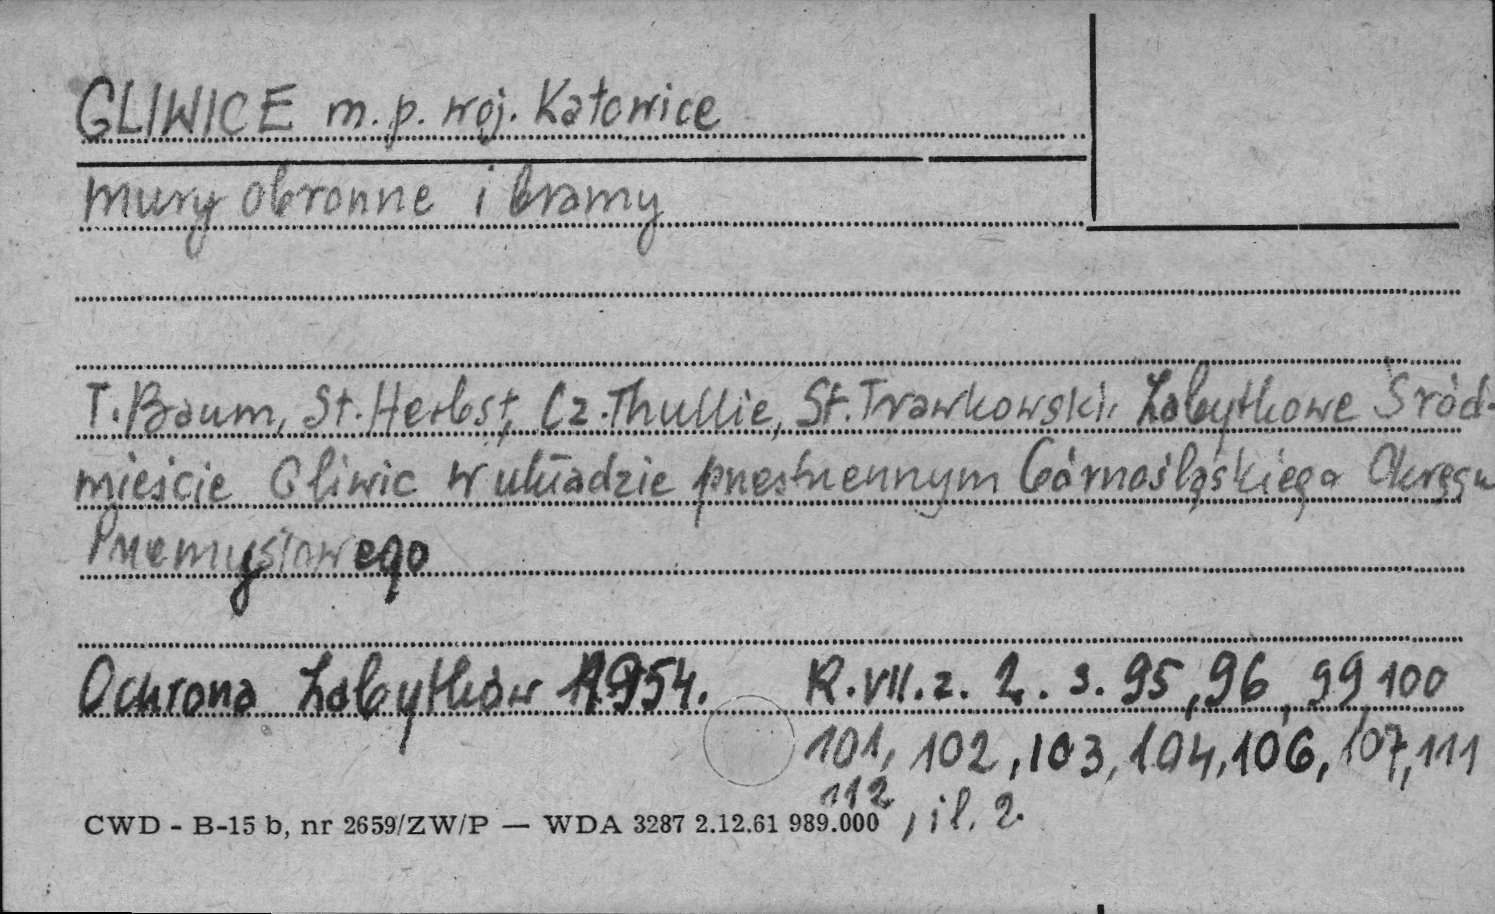 GLIWICE m. p. woj. Katowice
mury obronne i bramy
T. Baum, St. Herbst, Cz. Thullie, St. Trawkowski. Zabytkowe Śród-
mieście Gliwic w układzie przestrzennym Górnośląskiego Okręgu
Przemysłowego
Ochrona Zabytków 1954. R. VII. z. 2. s. 95, 96, 99 100
101, 102, 103, 104, 106, 107, 111
112, il. 2.
CWD - B-15 b, nr 2659/ZW/P — WDA 3287 2.12.61 989.000